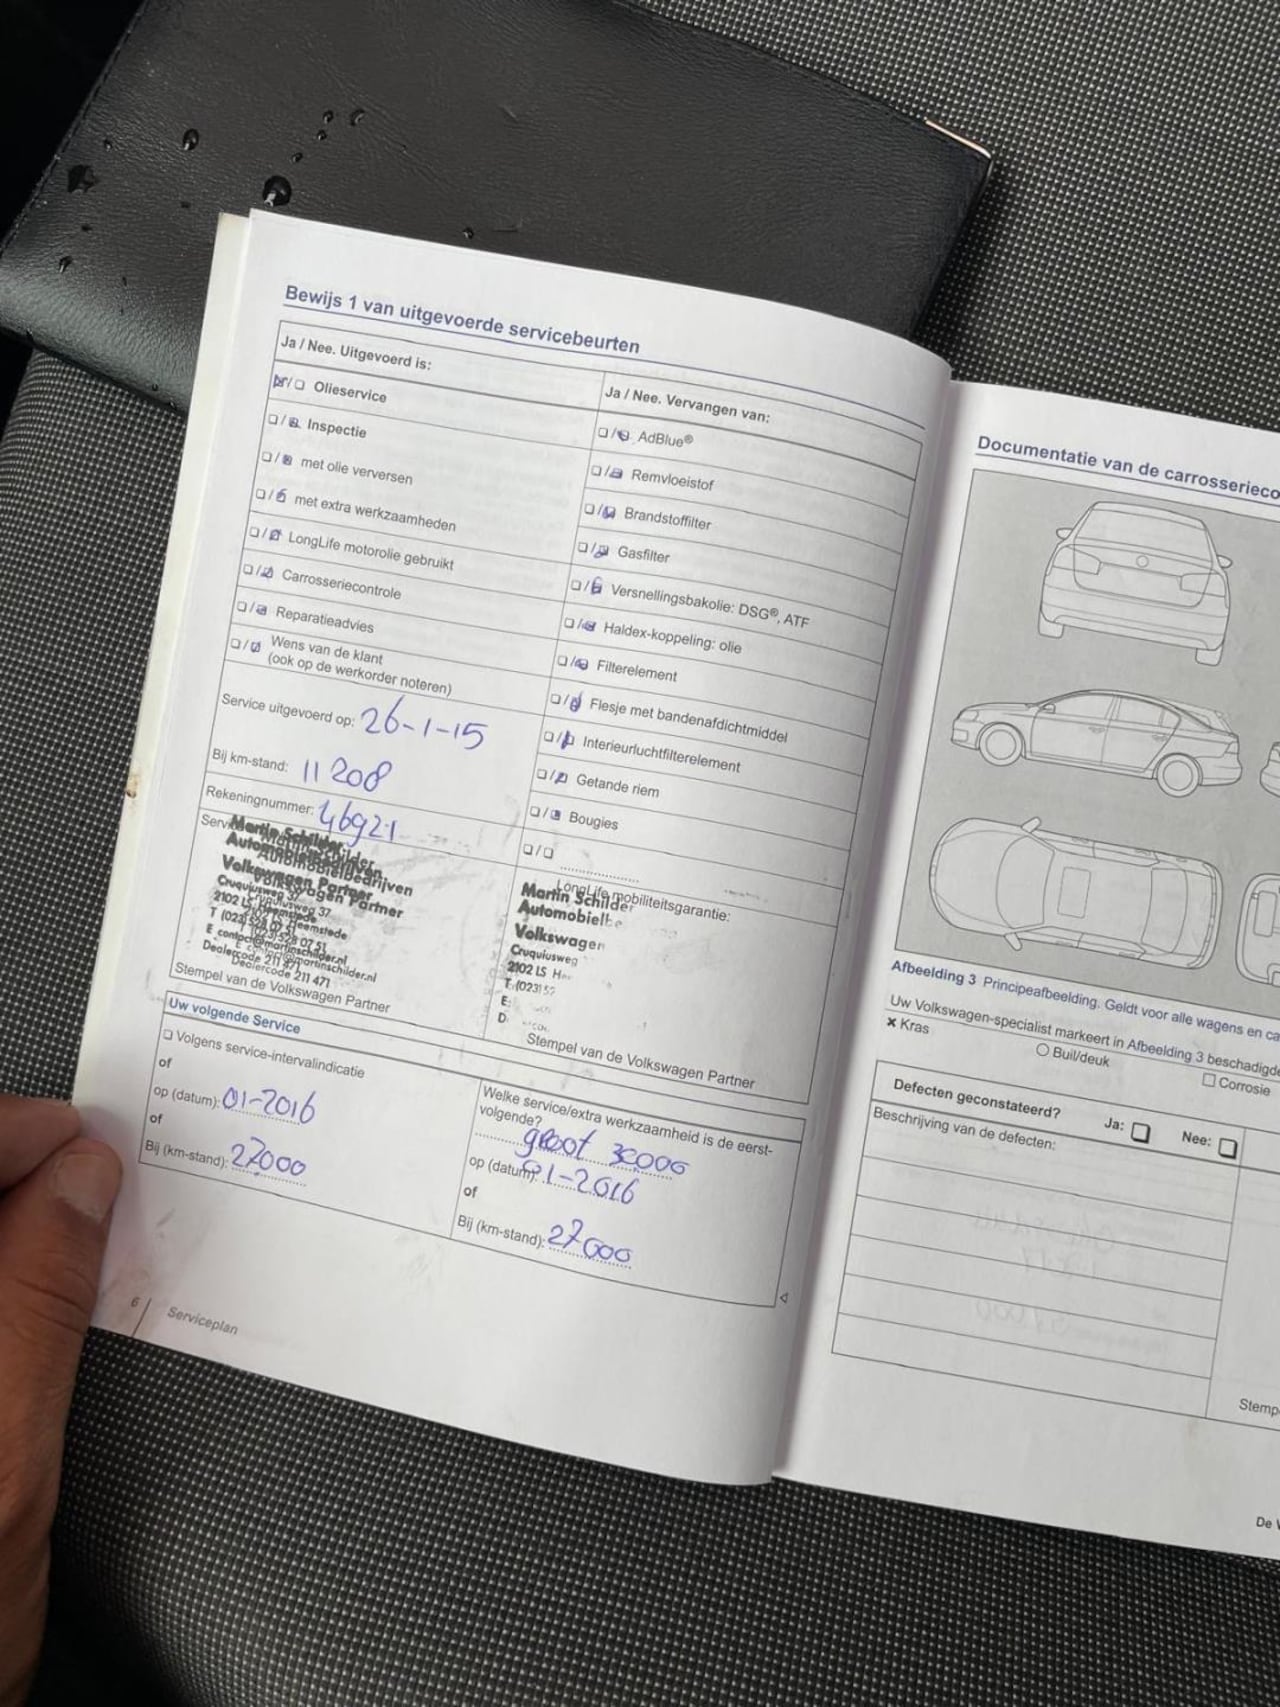 Bewijs 1 van uitgevoerde servicebeurten
Ja / Nee. Uitgevoerd is:
Olieservice
Inspectie
met olie verversen
met extra werkzaamheden
LongLife motorolie gebruikt
Carrosseriecontrole
Reparatieadvies
Wens van de klant
(ook op de werkorder noteren)
Service uitgevoerd op: 26-1-15
Bij km-stand: 11208
Rekeningnummer: 46921
Martin Schilder
Automobielbedrijven
Volkswagen Partner
Cruquiusweg 37
2102 LS Heemstede
E contact@martinschilder.nl
Dealercode 211 471
Stempel van de Volkswagen Partner
Ja / Nee. Vervangen van:
AdBlue®
Remvloeistof
Brandstoffilter
Gasfilter
Versnellingsbakolie: DSG®, ATF
Haldex-koppeling: olie
Filterelement
Flesje met bandenafdichtmiddel
Interieurluchtfilterelement
Getande riem
Bougies
LongLife mobiliteitsgarantie:
Martin Schilder
Cruquiusweg
2102 LS
Stempel van de Volkswagen Partner
Uw volgende Service
Volgens service-intervalindicatie
of
op (datum): 01-2016
of
Bij (km-stand): 27000
Welke service/extra werkzaamheid is de eerst-
volgende?
groot 30000
op (datum): 01-2016
of
Bij (km-stand): 27000
6 Serviceplan
Documentatie van de carrosserieco
Afbeelding 3 Principeafbeelding. Geldt voor alle wagens en ca
Uw Volkswagen-specialist markeert in Afbeelding 3 beschadigde
× Kras
Buil/deuk
Corrosie
Defecten geconstateerd? Ja: Nee:
Beschrijving van de defecten:
Stemp
De